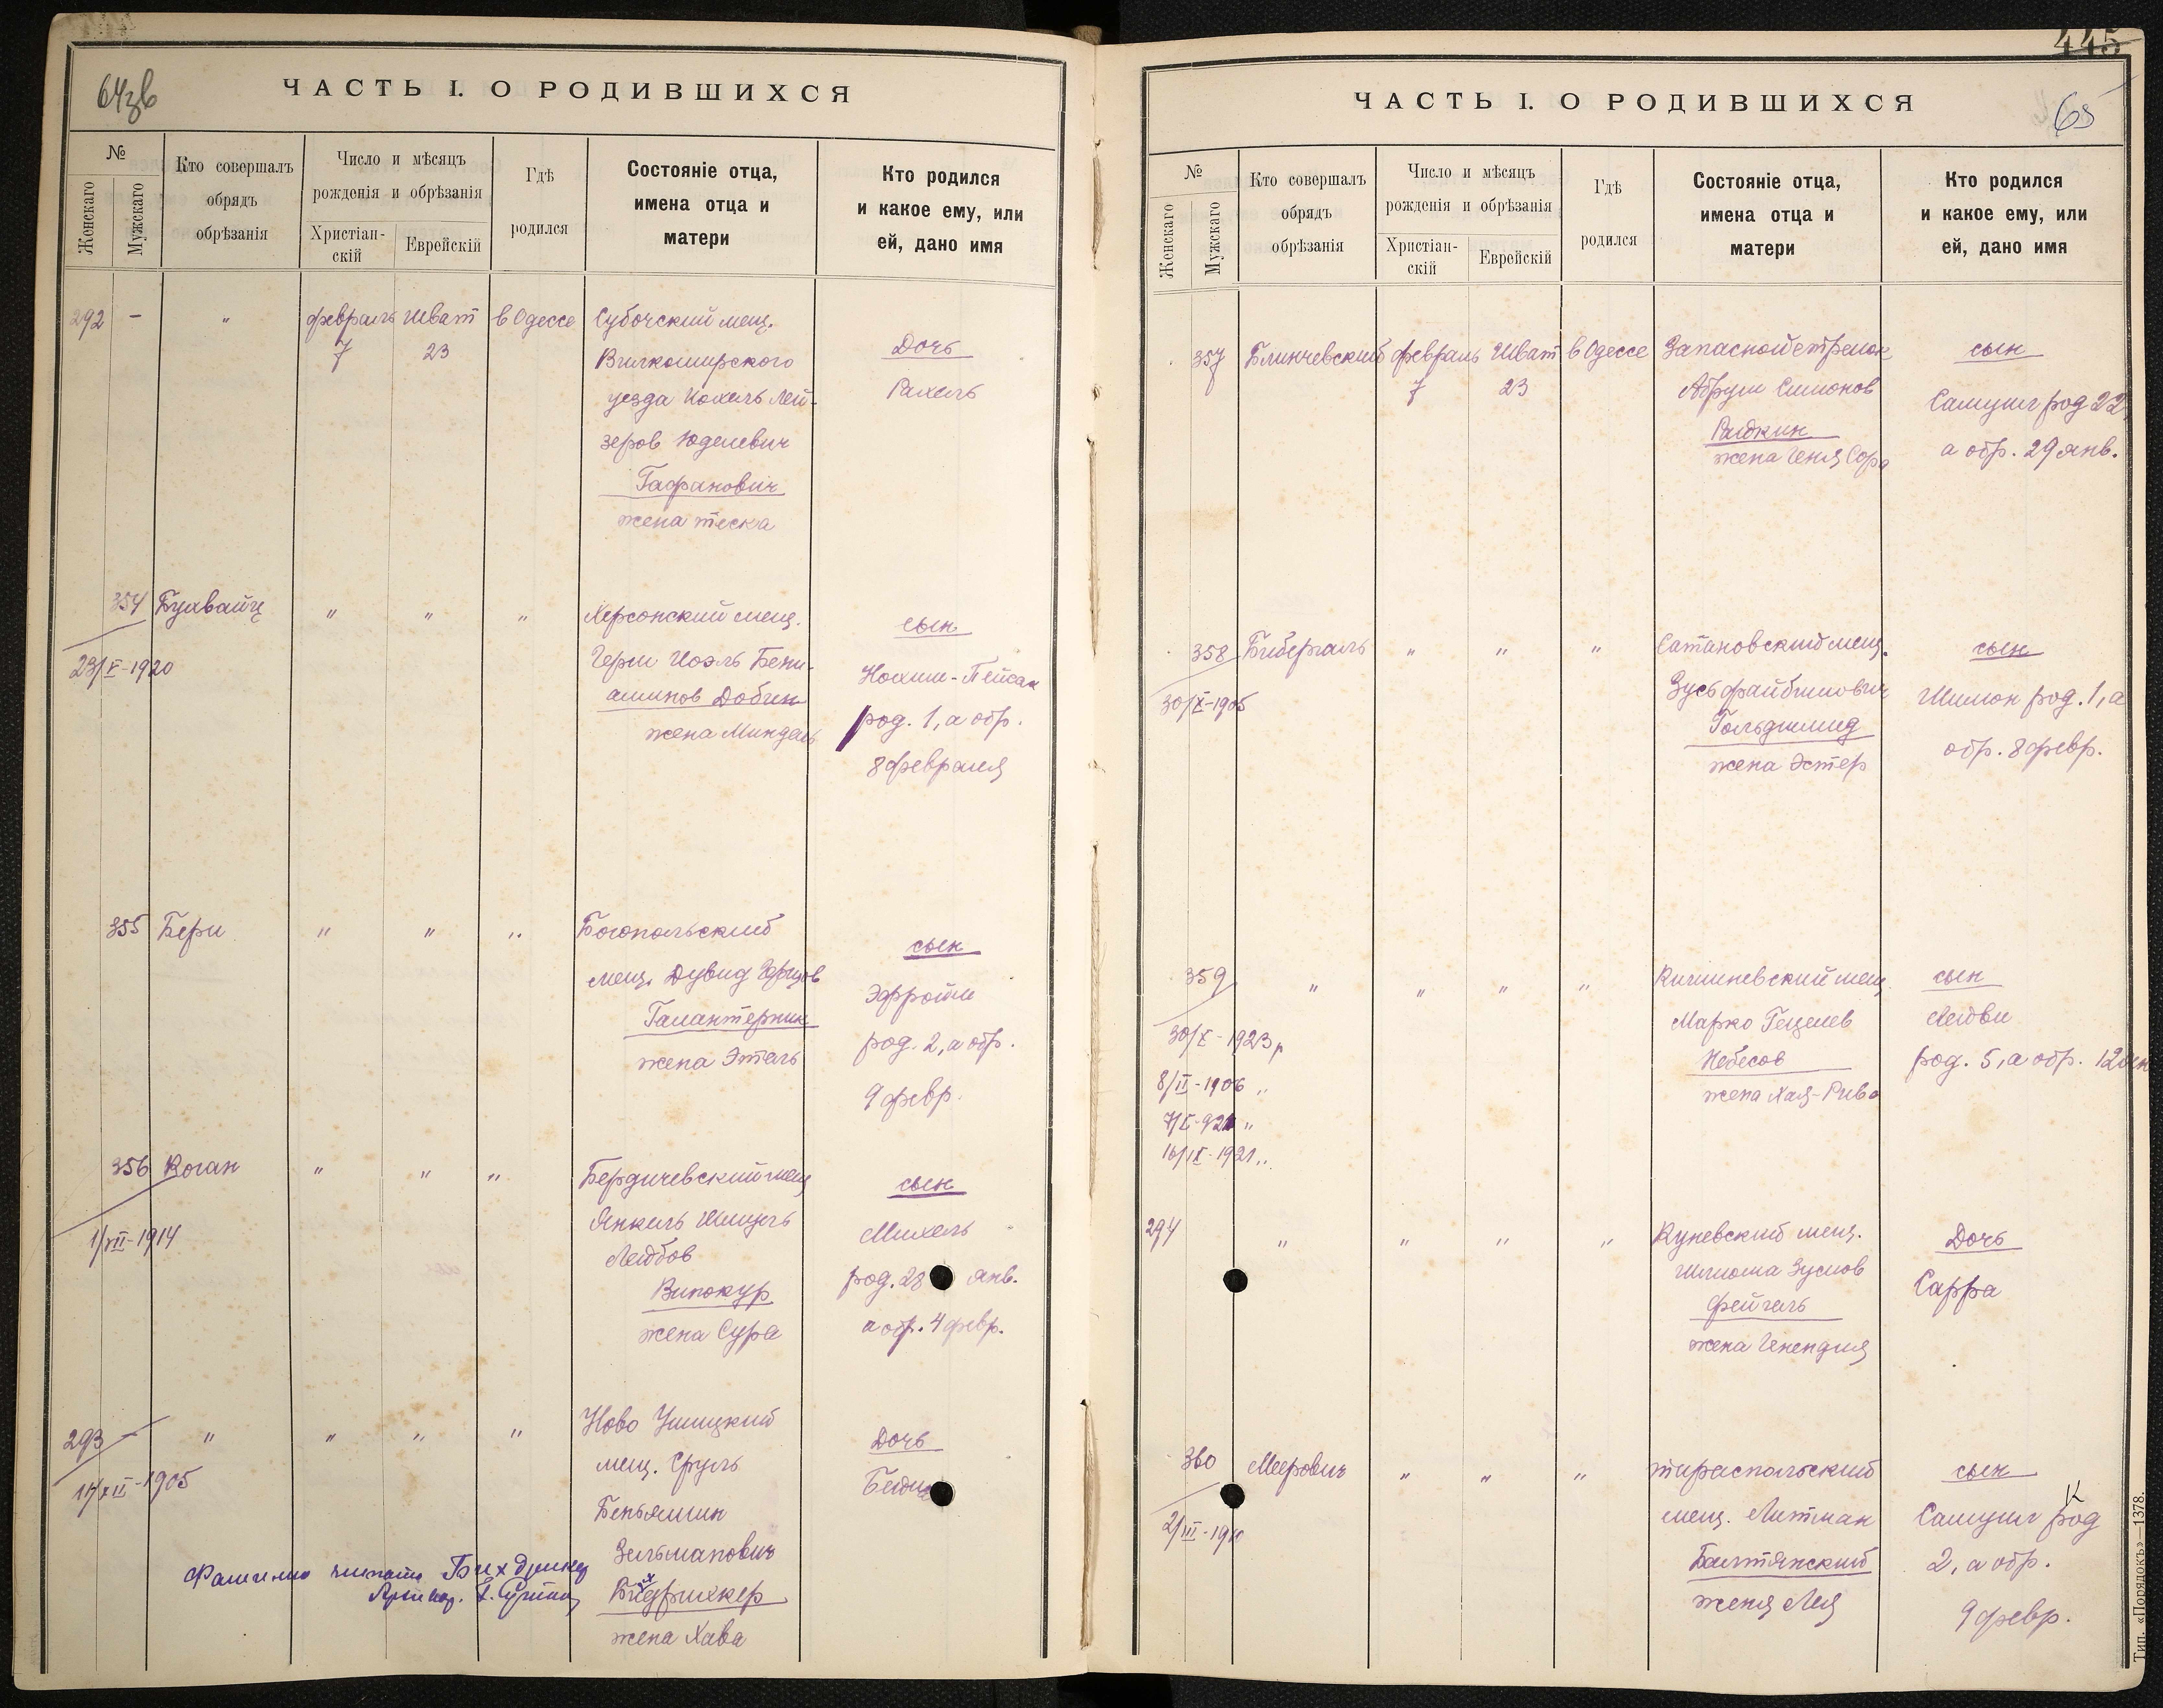 64зв
ЧАСТЬ I. О РОДИВШИХСЯ
№
Женскаго
Мужскаго
Кто совершалъ
обрядъ
обрѣзанія
Число и мѣсяцъ
рожденія и обрѣзанія
Христіан-
скій
Еврейскій
Гдѣ
родился
Состояніе отца,
имена отца и
матери
Кто родился
и какое ему, или
ей, дано имя
292 — " февраль Шват в Одессе Субочский мещ.
7 23 Вилкомирского
Дочь
уезда Иохель Лей-
Рахель
зеров Юделевич
Гафанович
жена
354 " " " Херсонский мещ.
сын
23/X-1920
Герш Иоэль Бени-
аминов Добин
Нохим-Пейсах
жена Миндель
род. 1, а обр.
8 февраля
355 Бери " " " Богопольский
сын
мещ. Дувид
Эфроим
Галантерник
род. 2, а обр.
жена Этель
9 февр.
356 Коган " " " Бердичевский мещ
сын
1/VII-1914
Янкель Шмуль
Михель
Лейбов
род. 28 янв.
Винокур
а обр. 4 февр.
жена Сура
293 — " " " " Ново Ушицкий
Дочь
мещ. Сруль
17/XII-1905
Беньямин
Зельманович
Фамилию читать
жена Хава
445
65
ЧАСТЬ I. О РОДИВШИХСЯ
№
Женскаго
Мужскаго
Кто совершалъ
обрядъ
обрѣзанія
Число и мѣсяцъ
рожденія и обрѣзанія
Христіан-
скій
Еврейскій
Гдѣ
родился
Состояніе отца,
имена отца и
матери
Кто родился
и какое ему, или
ей, дано имя
357 Блинчевский февраль Шват в Одессе Запасной стрелок
сын
7 23 Абрум Симонов
Самуил род 22,
жена Геня Сора
а обр. 29 янв.
358 Биберталь " " " Сатановский мещ.
сын
30/X-1905
Зусь Файбишович
Шимон род. 1, а
Гольдшмид
обр. 8 февр.
жена Эстер
359 " " " " Кишиневский мещ
сын
Марко Гецелев
Лейви
30/X-1923 г
Небесов
род. 5, а обр. 12
8/II-1906 "
жена Хая-Рива
16/IX-1921 "
294 " " " " Куневский мещ.
Дочь
Шлиома Зуслов
Сарра
Фейгель
жена Генендля
360 Меерович " " " тираспольский
сын
мещ. Литман
Самуил род
Балтянский
2, а обр.
жена Лея
9 февр.
Тип. «Порядокъ»—1378.